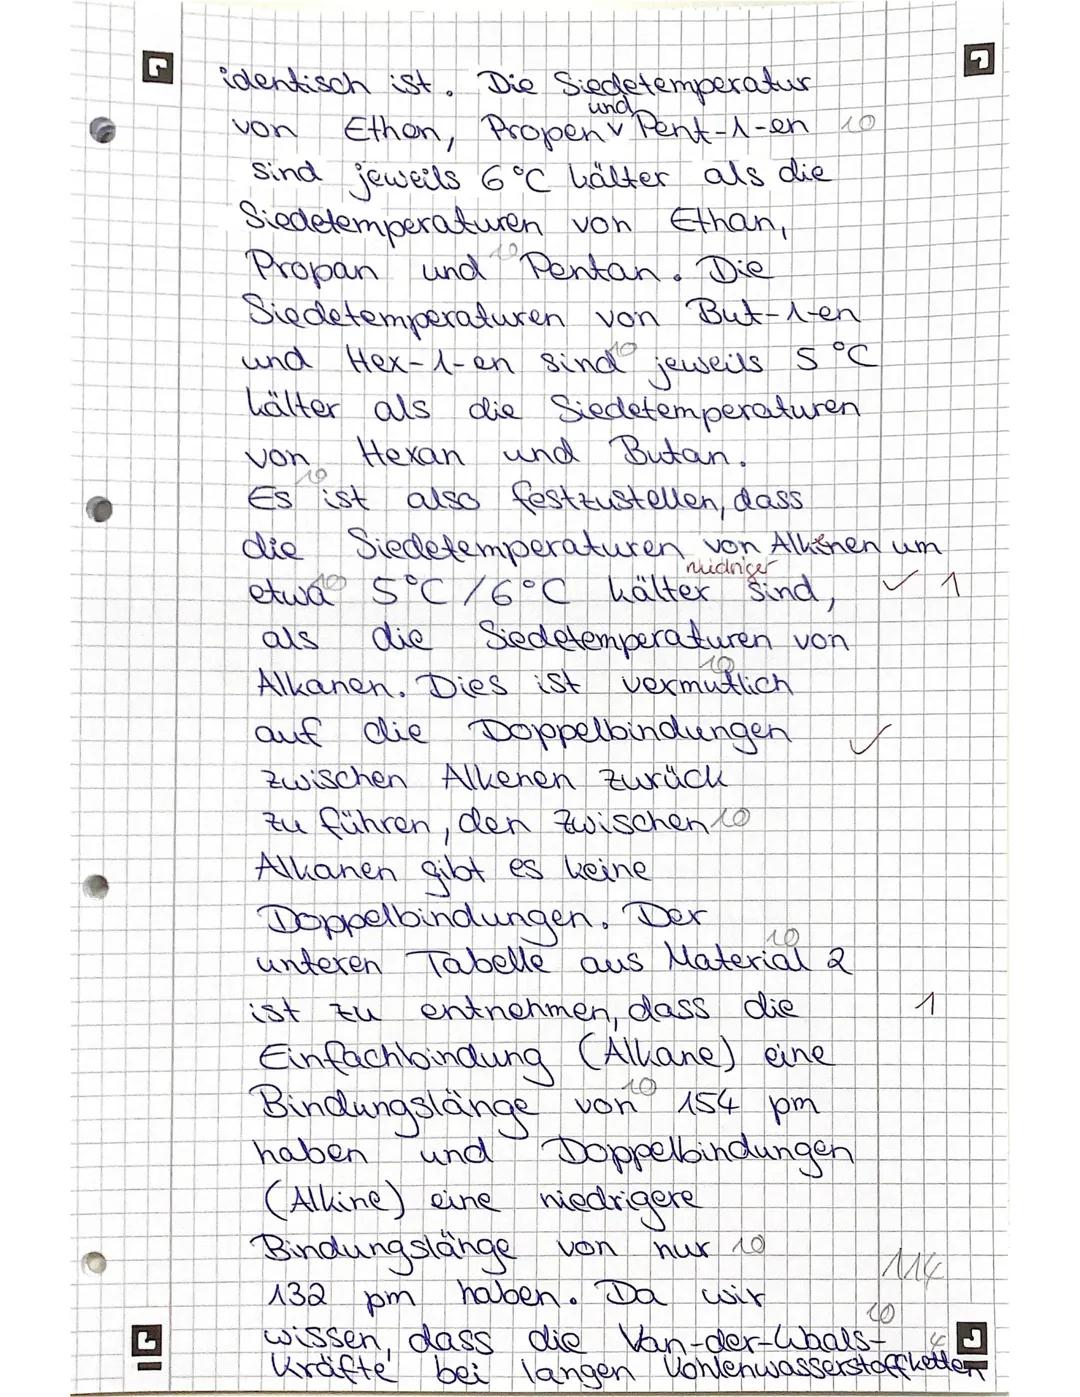 identisch ist. Die Siedetemperatur
und
von Ethen, Propen v Pent-1-en 10
sind jeweils 6°C kälter als die
Siedetemperaturen von Ethan,
10
Propan und Pentan. Die
Siedetemperaturen von But-1-en
10
und Hex-1-en sind jeweils 5°C
kälter als die Siedetemperaturen
von Hexan und Butan.
10
Es ist also festzustellen, dass
die Siedetemperaturen von Alkenen um
niedriger
etwa 10 5°C/6°C kälter sind, ✓ 1
als die Siedetemperaturen von
10
Alkanen. Dies ist vermutlich
auf die Doppelbindungen ✓
zwischen Alkenen zurück
zu führen, den zwischen 10
Alkanen gibt es keine
Doppelbindungen. Der
10
unteren Tabelle aus Material 2
ist zu entnehmen, dass die 1
Einfachbindung (Alkane) eine
10
Bindungslänge von 154 pm
haben und Doppelbindungen
(Alkine) eine niedrigere
Bindungslänge von nur 10
114
132 pm haben. Da wir
10
wissen, dass die Van-der-Waals- 4
Kräfte bei langen Kohlenwasserstoffketten